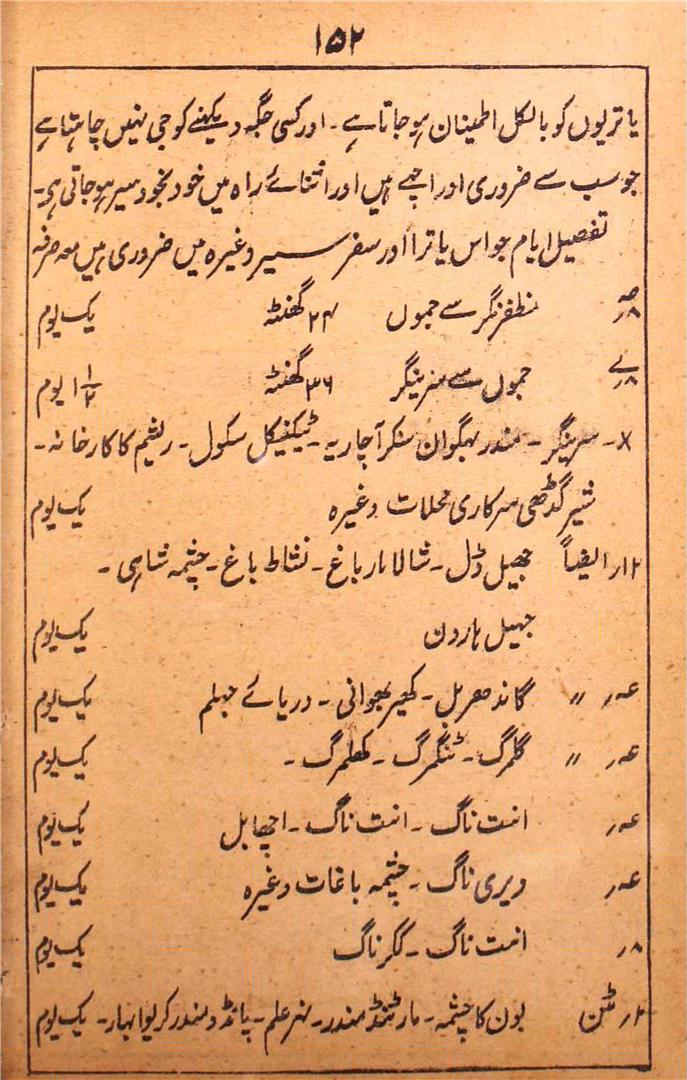 ۱۵۲
یاتریوں کو بالکل اطمینان ہو جاتا ہے۔ اور کسی جگہ دیکہنے کو جی نہیں چاہتا ہے
جو سب سے ضروری اور اچہے ہیں اور اثنائے راہ میں خود بخود سیر ہو جاتی ہی۔
تفصیل ایام جو اس یاترا اور سفر سیر وغیرہ میں ضروری ہیں معہ صرفہ
مظفرنگر سے جموں ۲۴ گھنٹہ یک یوم
جموں سے سرینگر ۳۶ گھنٹہ ۱ ۱/۲ یوم
×۔ سرینگر۔ مندر بہگوان سنکر آچاریہ۔ ٹیکنیکل سکول۔ ریشم کا کارخانہ۔
شیر گڈھی سرکاری محلات وغیرہ یک یوم
۱۲ر ایضاً جھیل ڈل۔ شالامار باغ۔ نشاط باغ۔ چشمہ شاہی۔
جہیل ہارون یک یوم
عہ ر 〃 گاندھربل۔ کھیر بھوانی۔ دریائے جہلم یک یوم
عہ ر 〃 گلمرگ۔ ٹنگمرگ۔ کھلمرگ۔ یک یوم
عہ ر اننت ناگ۔ اننت ناگ۔ اچھابل یک یوم
عہ ر ویری ناگ۔ چشمہ باغات وغیرہ یک یوم
۸ر اننت ناگ۔ ککرناگ یک یوم
۲ر مٹن بون کا چشمہ۔ مارٹنڈ مندر۔ نہر علم۔ پانڈو مندر کریوا بہار۔ یک یوم